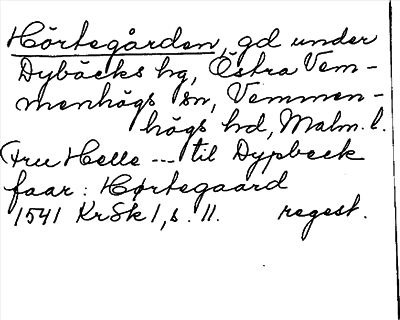 Hörtegården, gd under
Dybäcks hg, Östra Vem-
menhögs sn, Vemmen-
högs hd, Malm. l.
Fru Helle --- til Dypbeck
faar: Hørtegaard
1541 KrSk 1, s. 11. regest.